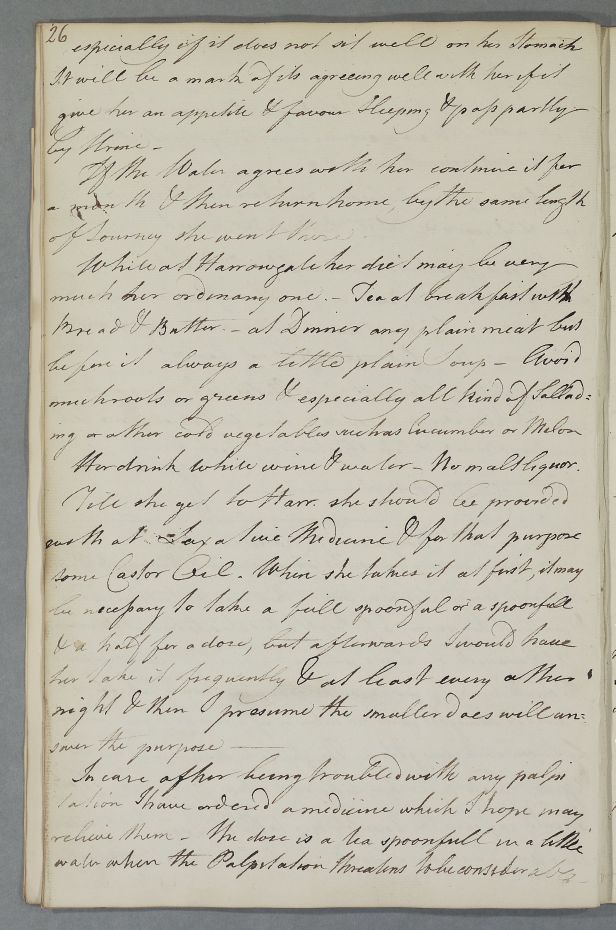 26
especially if it does not sit well on her Stomach
It will be a mark of its agreeing well with her if it
give her an appetite & favour Sleeping & pass partly
by Urine -
If the Water agrees with her continue it for
a month & then return home, by the same length
of Journey she went there
While at Harrowgate her diet may be very
much her ordinary one. - Tea at breakfast with
Bread & Butter. - at Dinner any plain meat but
before it always a little plain Soup - Avoid
much roots or greens & especially all kind of Sallad=
ing or other cold vegetables such as Cucumber or Melon
Her drink white wine & water - No malt liquor.
Till she get to Harr. she should be provided
with a Laxative Medicine & for that purpose
some Castor Oil. When she takes it at first, it may
be necessary to take a full spoonful or a spoonfull
& a half for a dose, but afterwards I would have
her take it frequently & at least every other
night & then I presume the smaller does will an=
swer the purpose -
In case of her being troubled with any palpi
tation I have ordered a medicine which I hope may
relieve them - the dose is a tea spoonfull in a little
water when the Palpitation threatens to be considerable -